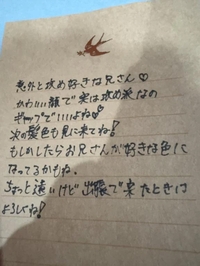 意外と攻め好きな兄さん♡
かわいい顔で実は攻め派なの
ギャップでいいよね♡
次の髪色も見に来てね!
もしかしたらお兄さんが好きな色に
なってるかもね。
ちょっと遠いけど出張で来たときは
よろしくね!